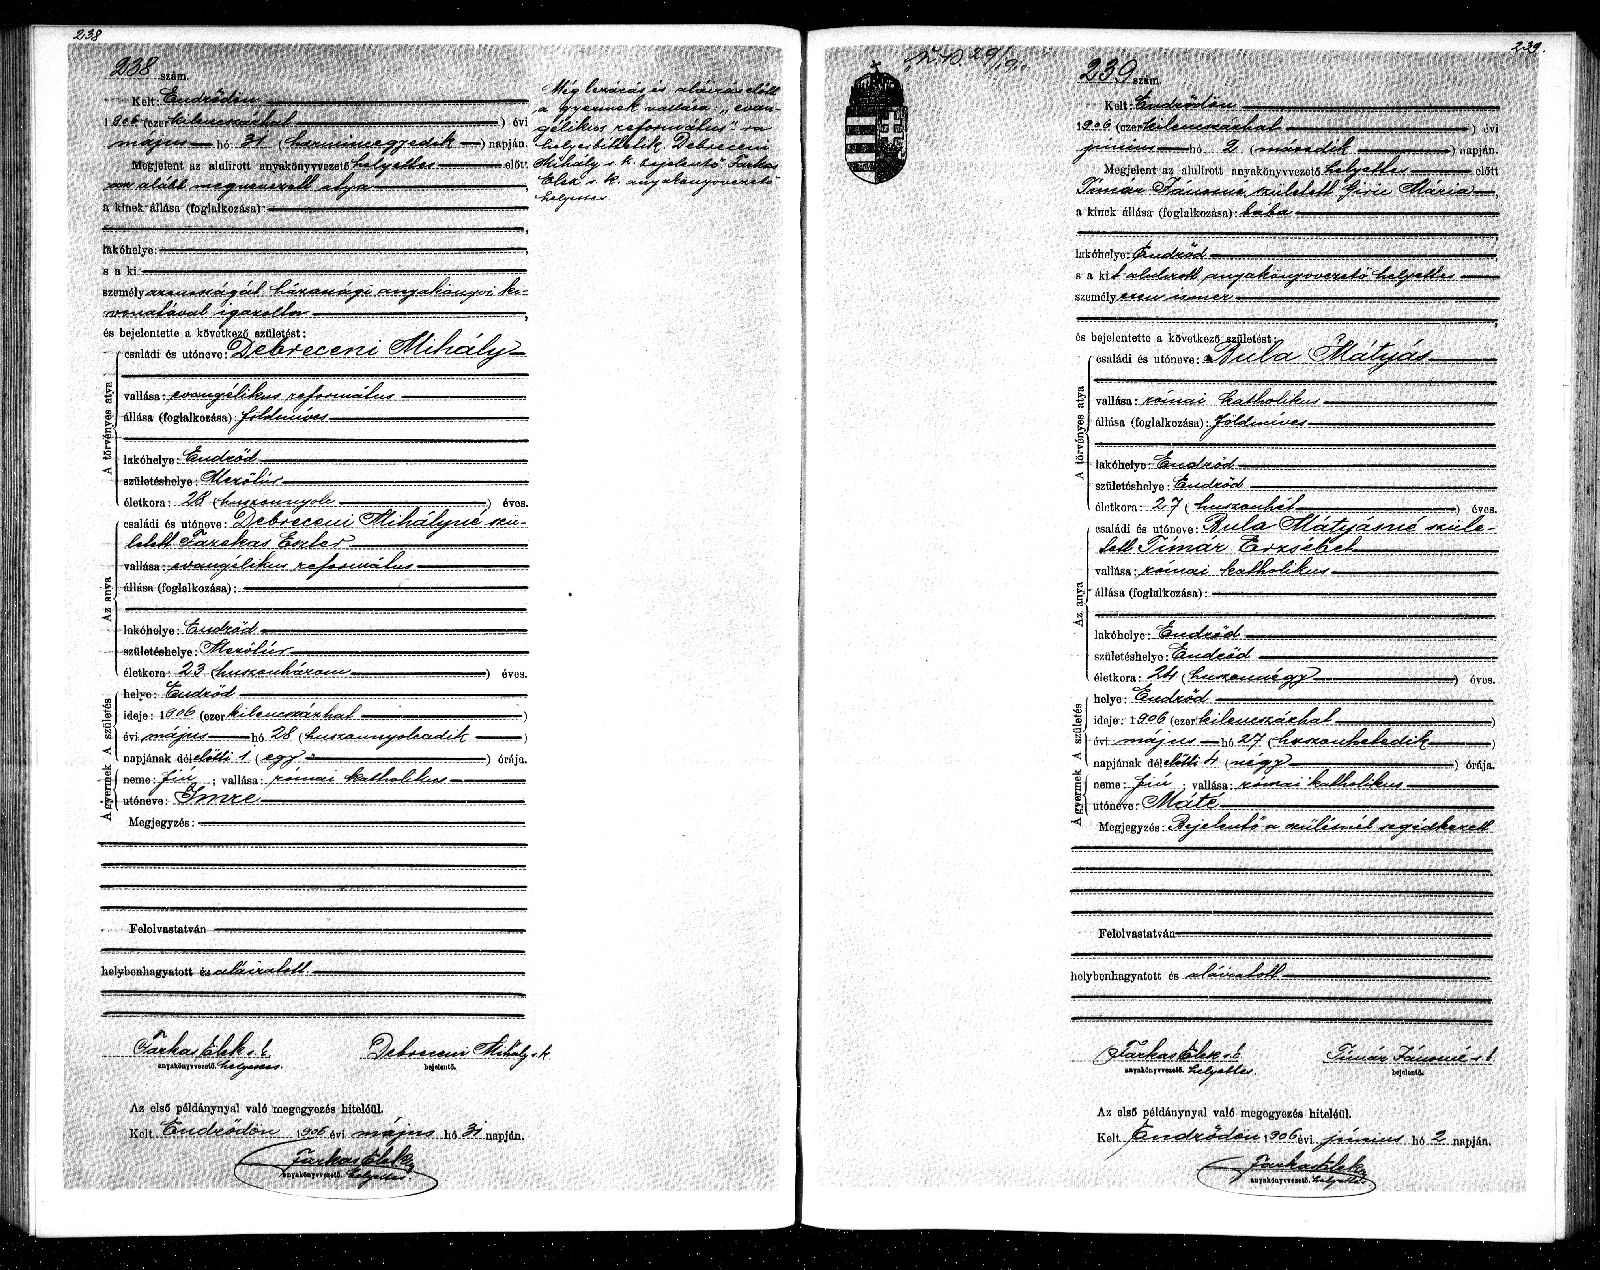 238
238 szám.
Kelt: Endrődön
1906 (ezerkilenczszázhat) évi
május hó 31 (harminczegyedik) napján.
Megjelent az alulirott anyakönyvvezető helyettes előtt
az alább megnevezett atya,
a kinek állása (foglalkozása):
lakóhelye:
s a ki
személyazonosságát házassági anyakönyvi ki-
vonatával igazolta,
és bejelentette a következő születést:
A törvényes atya
családi és utóneve: Debreceni Mihály
vallása: evangélikus református
állása (foglalkozása): földmíves
lakóhelye: Endrőd
születéshelye: Mezőtúr
életkora: 28 (huszonnyolc) éves.
Az anya
családi és utóneve: Debreceni Mihályné szü-
letett Fazekas Eszter
vallása: evangélikus református
állása (foglalkozása):
lakóhelye: Endrőd
születéshelye: Mezőtúr
életkora: 23 (huszonhárom) éves.
A gyermek A születés
helye: Endrőd
ideje: 1906 (ezerkilenczszázhat)
évi május hó 28 (huszonnyolcadik)
napjának délelőtti 1 (egy) órája.
neme: fiú; vallása: római katholikus
utóneve: Imre
Megjegyzés:
Felolvastatván
helybenhagyatott és aláiratott
Farkas Elek s. k. Debreceni Mihály s k
anyakönyvvezető. helyettes bejelentő.
Az első példánynyal való megegyezés hiteléül.
Kelt Endrődön 1906 évi május hó 31 napján.
Farkas Elek
anyakönyvvezető. helyettes
Még lezárás és aláírás előtt
a gyermek vallása: „evan-
gélikus református"-ra
helyesbíttetik. Debreceni
Mihály s k. bejelentő Farkas
Elek s k. anyakönyvvezető
helyettes
239.
239 szám
Kelt: Endrődön
1906 (ezerkilenczszázhat) évi
június hó 2 (második) napján.
Megjelent az alulirott anyakönyvvezető helyettes előtt
Tímár Jánosné született Mária,
a kinek állása (foglalkozása): bába
lakóhelye: Endrőd
s a kit alulirott anyakönyvvezető helyettes
személyesen ismer
és bejelentette a következő születést:
A törvényes atya
családi és utóneve: Bula Mátyás
vallása: római katholikus
állása (foglalkozása): földmíves
lakóhelye: Endrőd
születéshelye: Endrőd
életkora: 27 (huszonhét) éves.
Az anya
családi és utóneve: Bula Mátyásné szüle-
tett Tímár Erzsébet
vallása: római katholikus
állása (foglalkozása):
lakóhelye: Endrőd
születéshelye: Endrőd
életkora: 24 (huszonnégy) éves.
A gyermek A születés
helye: Endrőd
ideje: 1906 (ezerkilenczszázhat)
évi május hó 27 (huszonhetedik)
napjának délelőtti 4 (négy) órája.
neme: fiú; vallása: római katholikus
utóneve: Máté
Megjegyzés: Bejelentő a szülésnél segédkezett
Felolvastatván
helybenhagyatott és aláiratott
Farkas Elek s k Tímár Jánosné s k
anyakönyvvezető. helyettes. bejelentő.
Az első példánynyal való megegyezés hiteléül.
Kelt Endrődön 1906 évi június hó 2 napján.
Farkas Elek
anyakönyvvezető. helyettes